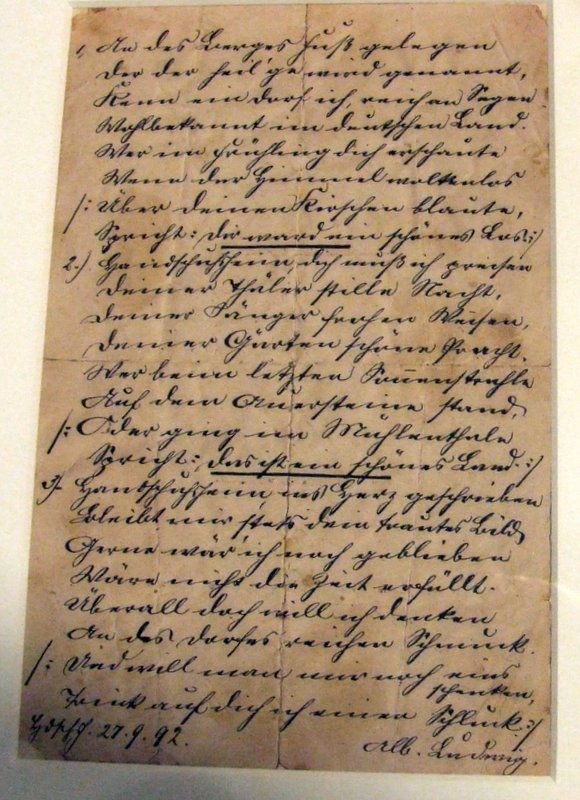 1, An des Berges Fuß gelegen
Der der heil'ge wird genannt,
Kenn ein Dorf ich, reich an Segen
Wohlbekannt im deutschen Land.
Wer im Frühling dich erschaute
Wenn der Himmel wolkenlos
/: Über deinen Kirschen blaute,
Spricht: Dir ward ein schönes Los :/
2.) Handschuhsheim, dich muß ich preisen
Deiner Thäler stille Nacht,
Deiner Sänger frohen Weisen,
Deiner Gärten schöne Pracht.
Wer beim letzten Sonnenstrahle
Auf dem Auersteine stand,
/: Oder ging im Mühlenthale
Spricht: das ist ein schönes Land. :/
3) Handschuhsheim, ins Herz geschrieben
Bleibt mir stets dein trautes Bild,
Gerne wär' ich noch geblieben
Wäre nicht die Zeit erfüllt.
Überall doch will ich denken
An des Dorfes reichen Schmuck.
/: Und will man mir noch eins
schenken,
Trink auf dich ich einen Schluck. :/
27.9.92.
Alb. Ludwig.